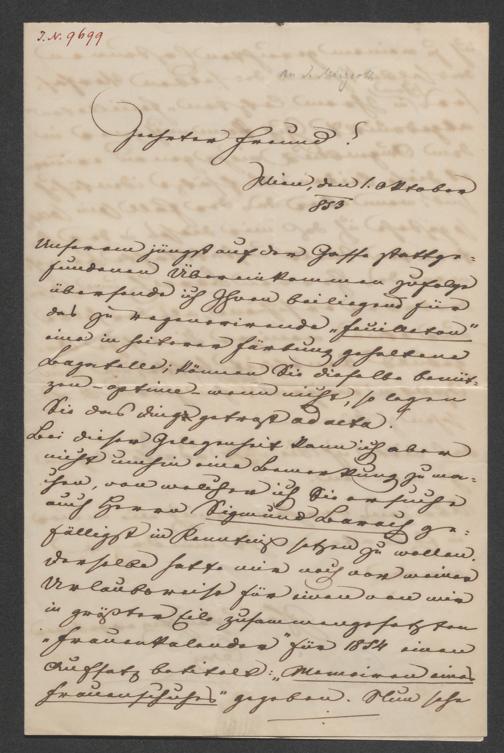 J. N. 9699
Geehrter Freund!
Wien, den 1. Oktober
853
Unserem jüngst auf der Gasse stattge-
fundenen Übereinkommen zufolge
übersende ich Ihnen beiliegend für
das zu regenerirende „Feuilleton"
eine in heiterer Färbung gehaltene
Bagatelle; können Sie dieselbe benüt-
zen – optime – wenn nicht, so legen
Sie das Dings getrost ad acta.
Bei dieser Gelegenheit kann ich aber
nicht umhin eine Bemerkung zu ma-
chen, von welcher ich Sie ersuche
auch Herrn Sigmund Barach ge-
fälligst in Kenntniß setzen zu wollen.
Derselbe hatte mir noch vor meiner
Urlaubsreise für einen von mir
in größter Eile zusammengesetzten
„Frauenkalender" für 1854 einen
Aufsatz betitelt: „Memoiren eines
Frauenschuhes" gegeben. Nun sehe